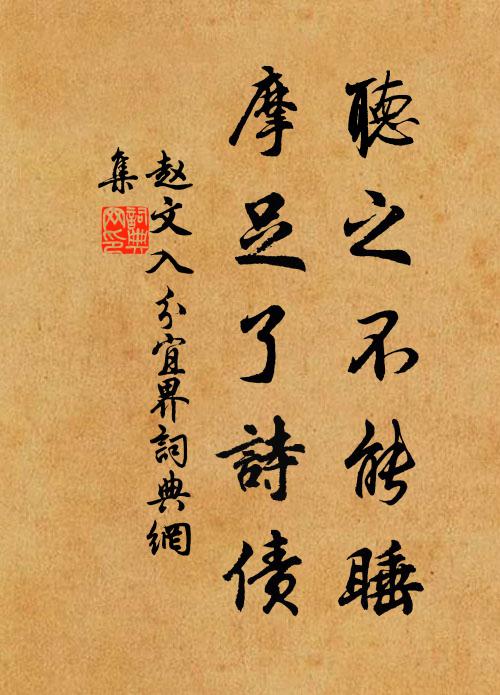 聽之不能睡
摩足了詩債
赵文入分宜界詞典網
集
詞典網印